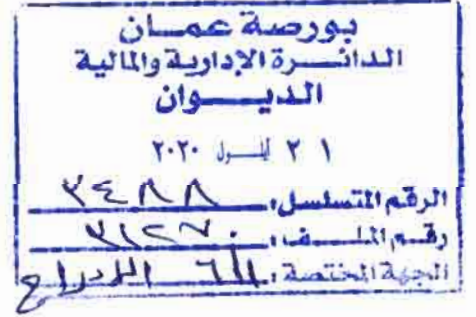 بورصة عمان
الدائرة الإدارية والمالية
الديوان
٢١ أيلول ٢٠٢٠
الرقم المتسلسل: ٣٤٨٨
رقم الملف: ٣١٢٧٠
الجهة المختصة: الإدراج